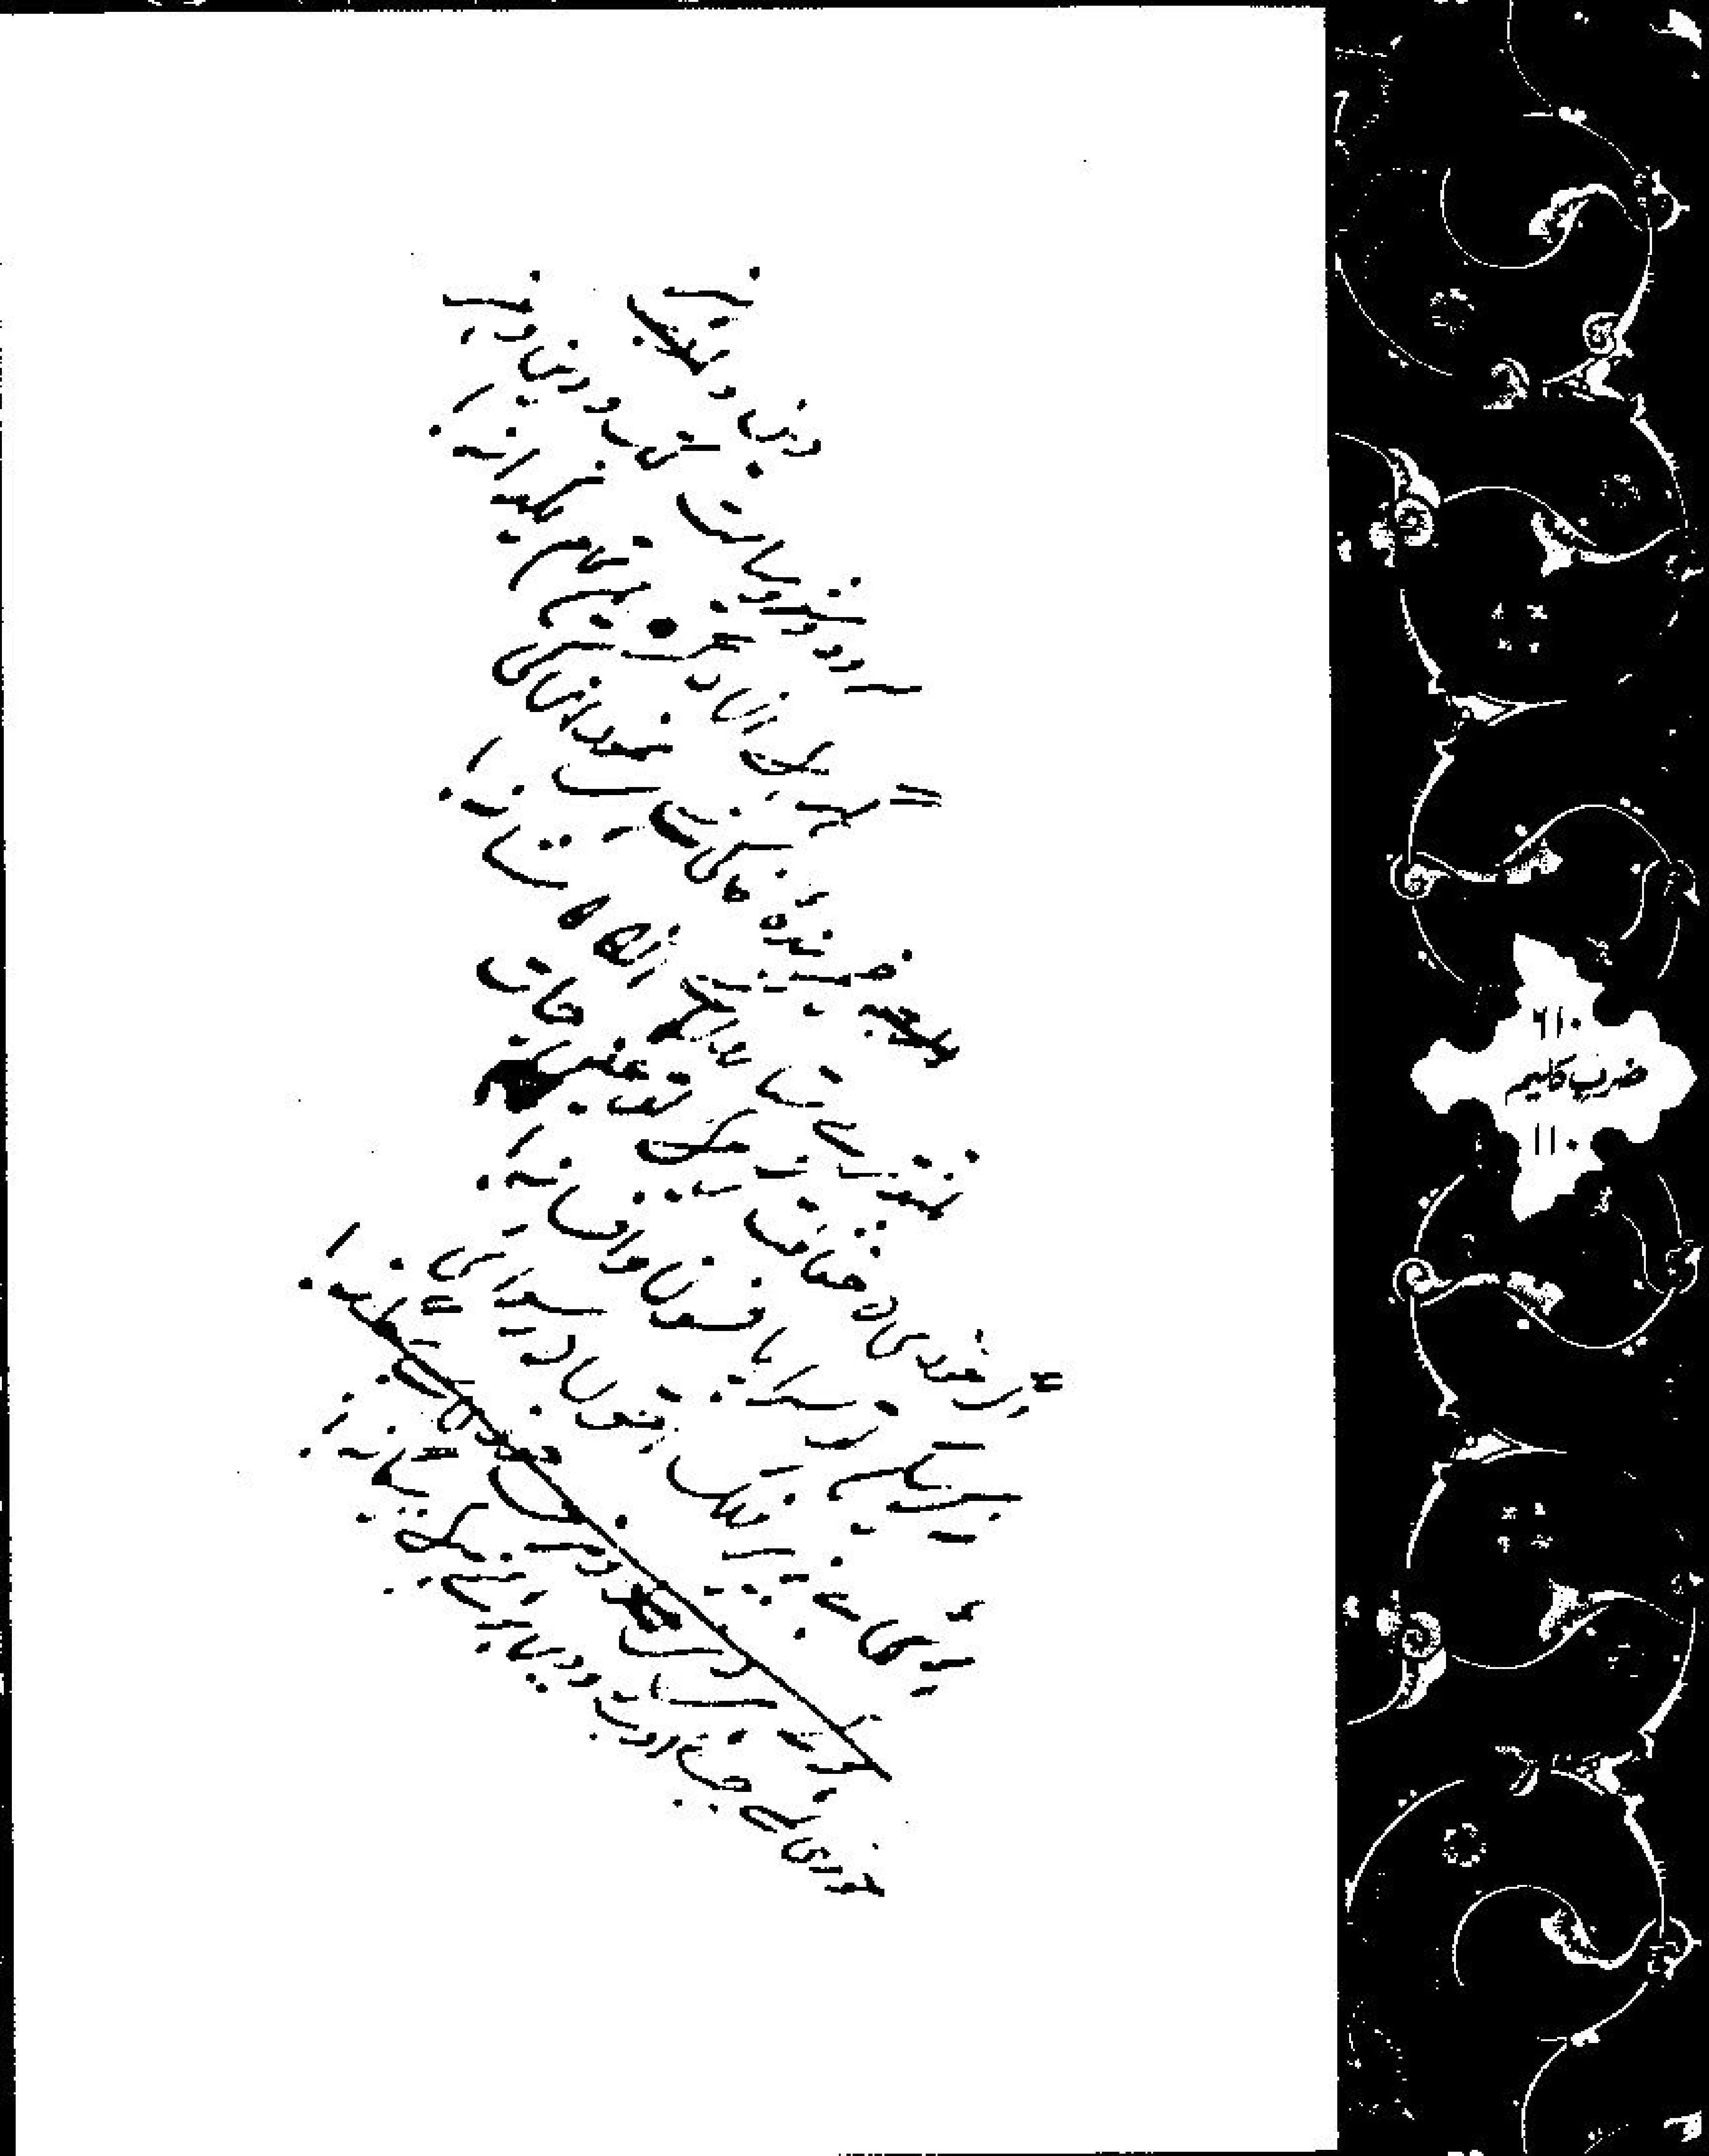 دین و ہنر
سرود و شعر و سیاست کتاب و دین و ہنر
گہر ہیں ان کی گرہ میں تمام یکدانہ!
ضمیر بندۂ خاکی سے ہے نمود ان کی
بلند تر ہے ستاروں سے ان کا کاشانہ!
اگر خودی کی حفاظت کریں تو عین حیات
نہ کر سکیں تو سراپا فسون و افسانہ!
ہوئی ہے زیر فلک امتوں کی رسوائی
خودی سے جب ادب و دیں ہوئے ہیں بیگانہ!
۶۱۰
ضرب کلیم
۱۱۰